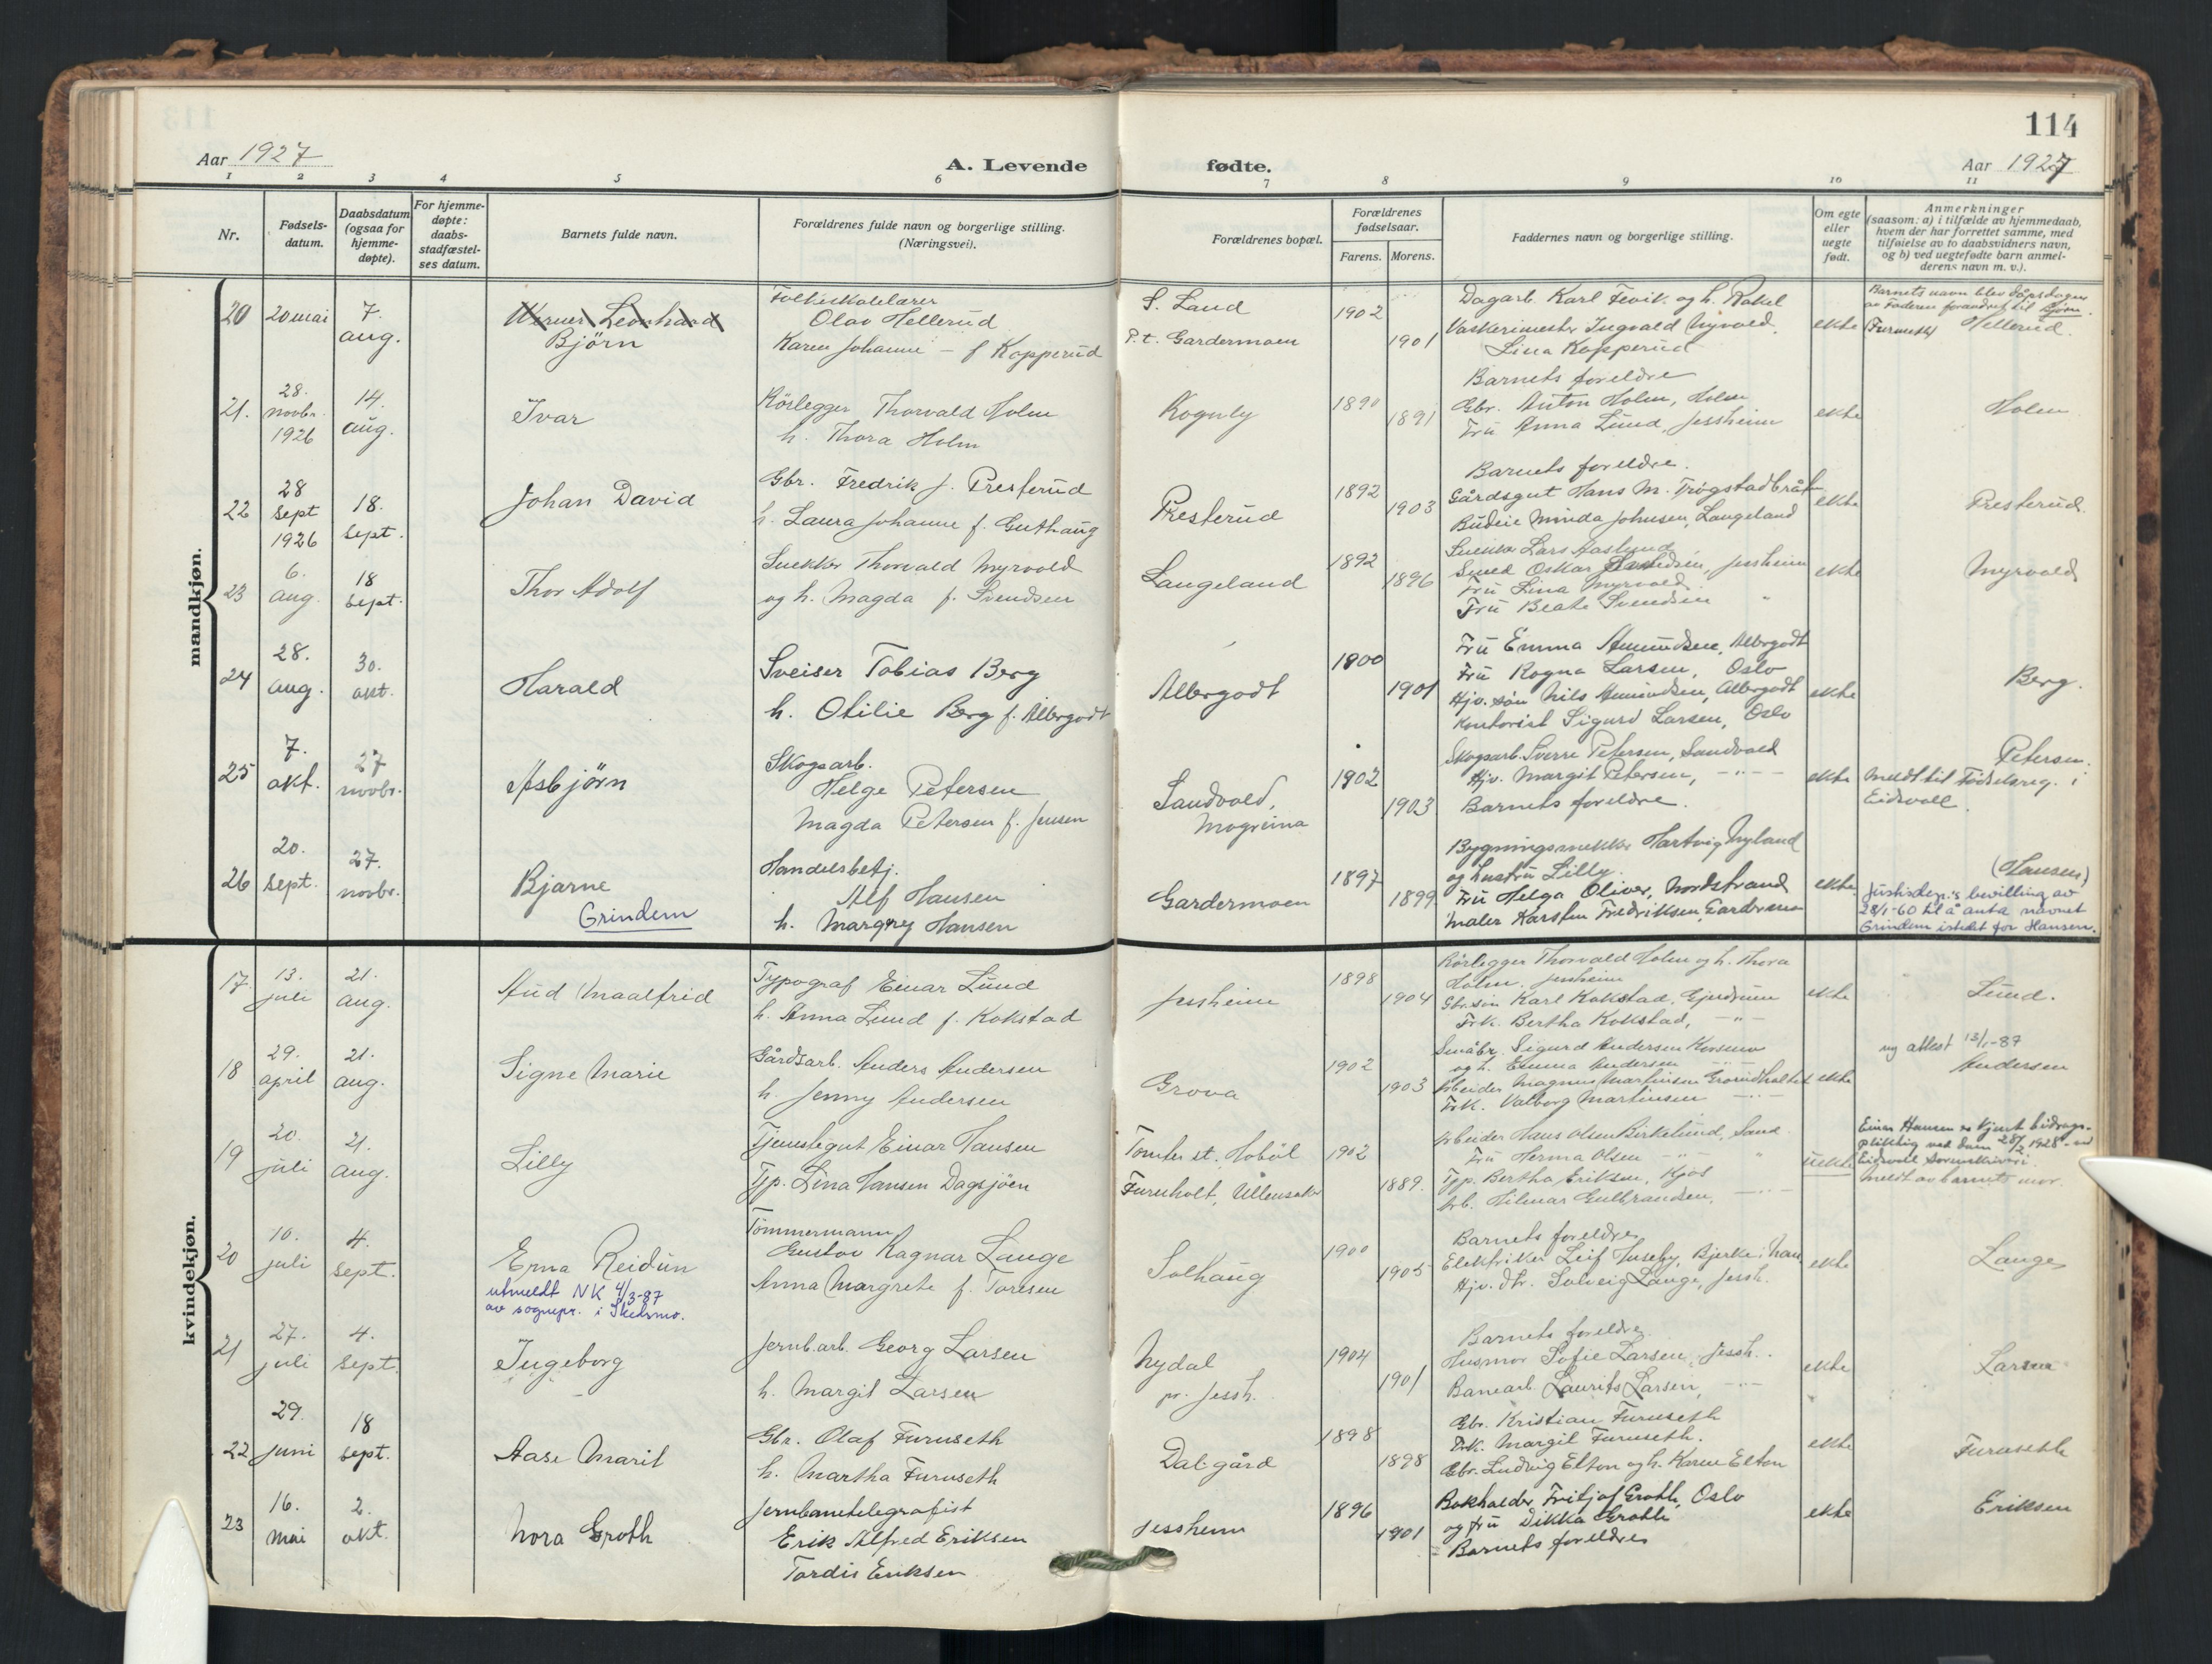 114
Aar 1927
A. Levende
fødte.
Aar 1927
1 2 3 4 5 6 7 8 9 10 11
Nr.
Fødsels-
datum.
Daabsdatum
(ogsaa for
hjemme-
døpte).
For hjemme-
døpte:
daabs-
stadfæstel-
ses datum.
Barnets fulde navn.
Forældrenes fulde navn og borgerlige stilling.
(Næringsvei).
Forældrenes bopæl.
Forældrenes
fødselsaar.
Farens. Morens.
Faddernes navn og borgerlige stilling.
Om egte
eller
uegte
født.
Anmerkninger
(saasom: a) i tilfælde av hjemmedaab,
hvem der har forrettet samme, med
tilføielse av to daabsvidners navn,
og b) ved uegtefødte barn anmel-
derens navn m. v.).
mandkjøn.
20
20 mai
7.
aug.
Werner Leonhard
Bjørn
Folkeskolelærer
Olav Hellerud
Karen Johanne - f Kopperud
S. Land
P.t. Gardermoen
1902
1901
Dagarb. Karl Fevik og h. Rakel
Vaskerimester Ingvald Nyvold.
Lina Kopperud
ekte
Barnets navn blev dåpsdagen
av Faderen forandret til Bjørn.
(Furuseth) Hellerud.
21.
28.
novbr.
1926
14.
aug.
Ivar
Rörlegger Thorvald Holm
h. Thora Holm
Rognly
1890
1891
Barnets foreldre
Gbr. Anton Holm, Holm
Fru Anna Lund, Jessheim
ekte
Holm
22
28
Sept
1926
18.
Sept.
Johan David
Gbr. Fredrik J. Presterud
h. Laura Johanne f. Guthaug
Presterud
1892
1903
Barnets foreldre.
Gårdsgut Hans M. Trøgstadbråten
Budeie Minda Johnsen, Langeland
ekte
Presterud.
23
6.
aug.
18
Sept.
Thor Adolf
Snekker Thorvald Myrvold
og h. Magda f. Svendsen
Langeland
1892
1896
Snekker Lars Aaslund
Smed Oskar Svendsen, Jessheim
Fru Lina Myrvold
Fru Beate Svendsen "
ekte
Myrvold
24
28.
aug.
30.
okt.
Harald
Sveiser Tobias Berg
h. Otilie Berg f. Albergodt
Albergodt
1900
1901
Fru Emma Amundsen, Albergodt
Fru Ragna Larsen, Oslo
Hjv. søn Nils Amundsen, Albergodt
Kontorist Sigurd Larsen, Oslo
ekte
Berg.
25
7.
okt.
27
novbr.
Asbjörn
Skogsarb.
Helge Petersen
Magda Petersen f. Jensen
Sandvold,
Mogreina
1902
1903
Skogsarb. Sverre Petersen, Sandvold
Hjv. Margit Petersen, - " -
Barnets foreldre.
ekte
Petersen.
Meldt til Fødselsreg. i
Eidsvoll.
26
20.
Sept.
27.
novbr.
Bjarne
Grindem
Handelsbetj.
Alf Hansen
h. Margny Hansen
Gardermoen
1897
1899
Bygningssnekker Hartvig Nyland
og hustru Lilly.
Fru Helga Oliver, Nordstrand
Maler Karsten Fredriksen, Gardermoen
ekte.
(Hansen)
Justisdep.'s bevilling av
28/1-60 til å anta navnet
Grindem istedet for Hansen.
kvindekjøn.
17.
13.
juli
21.
aug.
Aud Maalfrid
Typograf Einar Lund
h. Anna Lund f. Kokstad
Jessheim
1898
1904
Rörlegger Thorvald Holm og h. Thora
Holm, Jessheim
Gbr.søn Karl Kokstad, Gjerdrum
Frk. Bertha Kokstad, - " -
ekte
Lund.
18
29.
april
21.
aug.
Signe Marie
Gårdsarb. Anders Andersen
h. Jenny Andersen
Grova
1902
1903
Småbr. Sigurd Andersen Korsmo
og h. Emma Andersen
Arbeider Magnus Martinsen
Frk. Valborg Martinsen - " -
ekte
ny attest 13/1-87
Andersen
19
20.
juli
21.
aug.
Lilly
Tjenestegut Einar Hansen
Tjp. Lina Hansen Dagsjöen
Tomter st. Hobøl
Furuholt, Ullensaker
1902
1889.
Arbeider Hans Olsen Birkelund, Sand
Fru Herma Olsen - " -
Tjp. Bertha Eriksen, Kjos
Arb. Hilmar Gulbrandsen, - " -
uekte
Einar Hansen er kjent bidrags-
pliktig ved dom 28/2 1928 - ved
Eidsvoll Sorenskriveri.
Meldt av barnets mor.
20
10.
juli
4.
Sept.
Erna Reidun
utmeldt NK 4/3-87
av sognepr. i Skedsmo.
Tömmermann
Gustav Ragnar Lange
Anna Margrete f. Toresen
Solhaug
1900
1905
Barnets foreldre
Elektriker Leif Huseby, Bjerke, Nan.
Hjv. dtr. Solveig Lange, Jessh.
ekte
Lange
21
27.
juli
4.
Sept.
Ingeborg
Jernb.arb. Georg Larsen
h. Margit Larsen
Nydal
pr. Jessh.
1904
1901
Barnets foreldre
Husmor Sofie Larsen, Jessh.
Banearb. Laurits Larsen, - " -
ekte
Larsen
22
29.
juni
18
Sept.
Aase Marit
Gbr. Olaf Furuseth
h. Martha Furuseth
Dalgård
1898
1898
Gbr. Kristian Furuseth
Frk. Margit Furuseth.
Gbr. Ludvig Elton og h. Karen Elton
ekte
Furuseth
23
16.
mai
2.
okt.
Nora Groth
Jernbanetelegrafist
Erik Alfred Eriksen
Tordis Eriksen
Jessheim
1896
1901
Bokholder Fritjof Groth, Oslo
og fru Dikka Groth
= Barnets foreldre
ekte
Eriksen